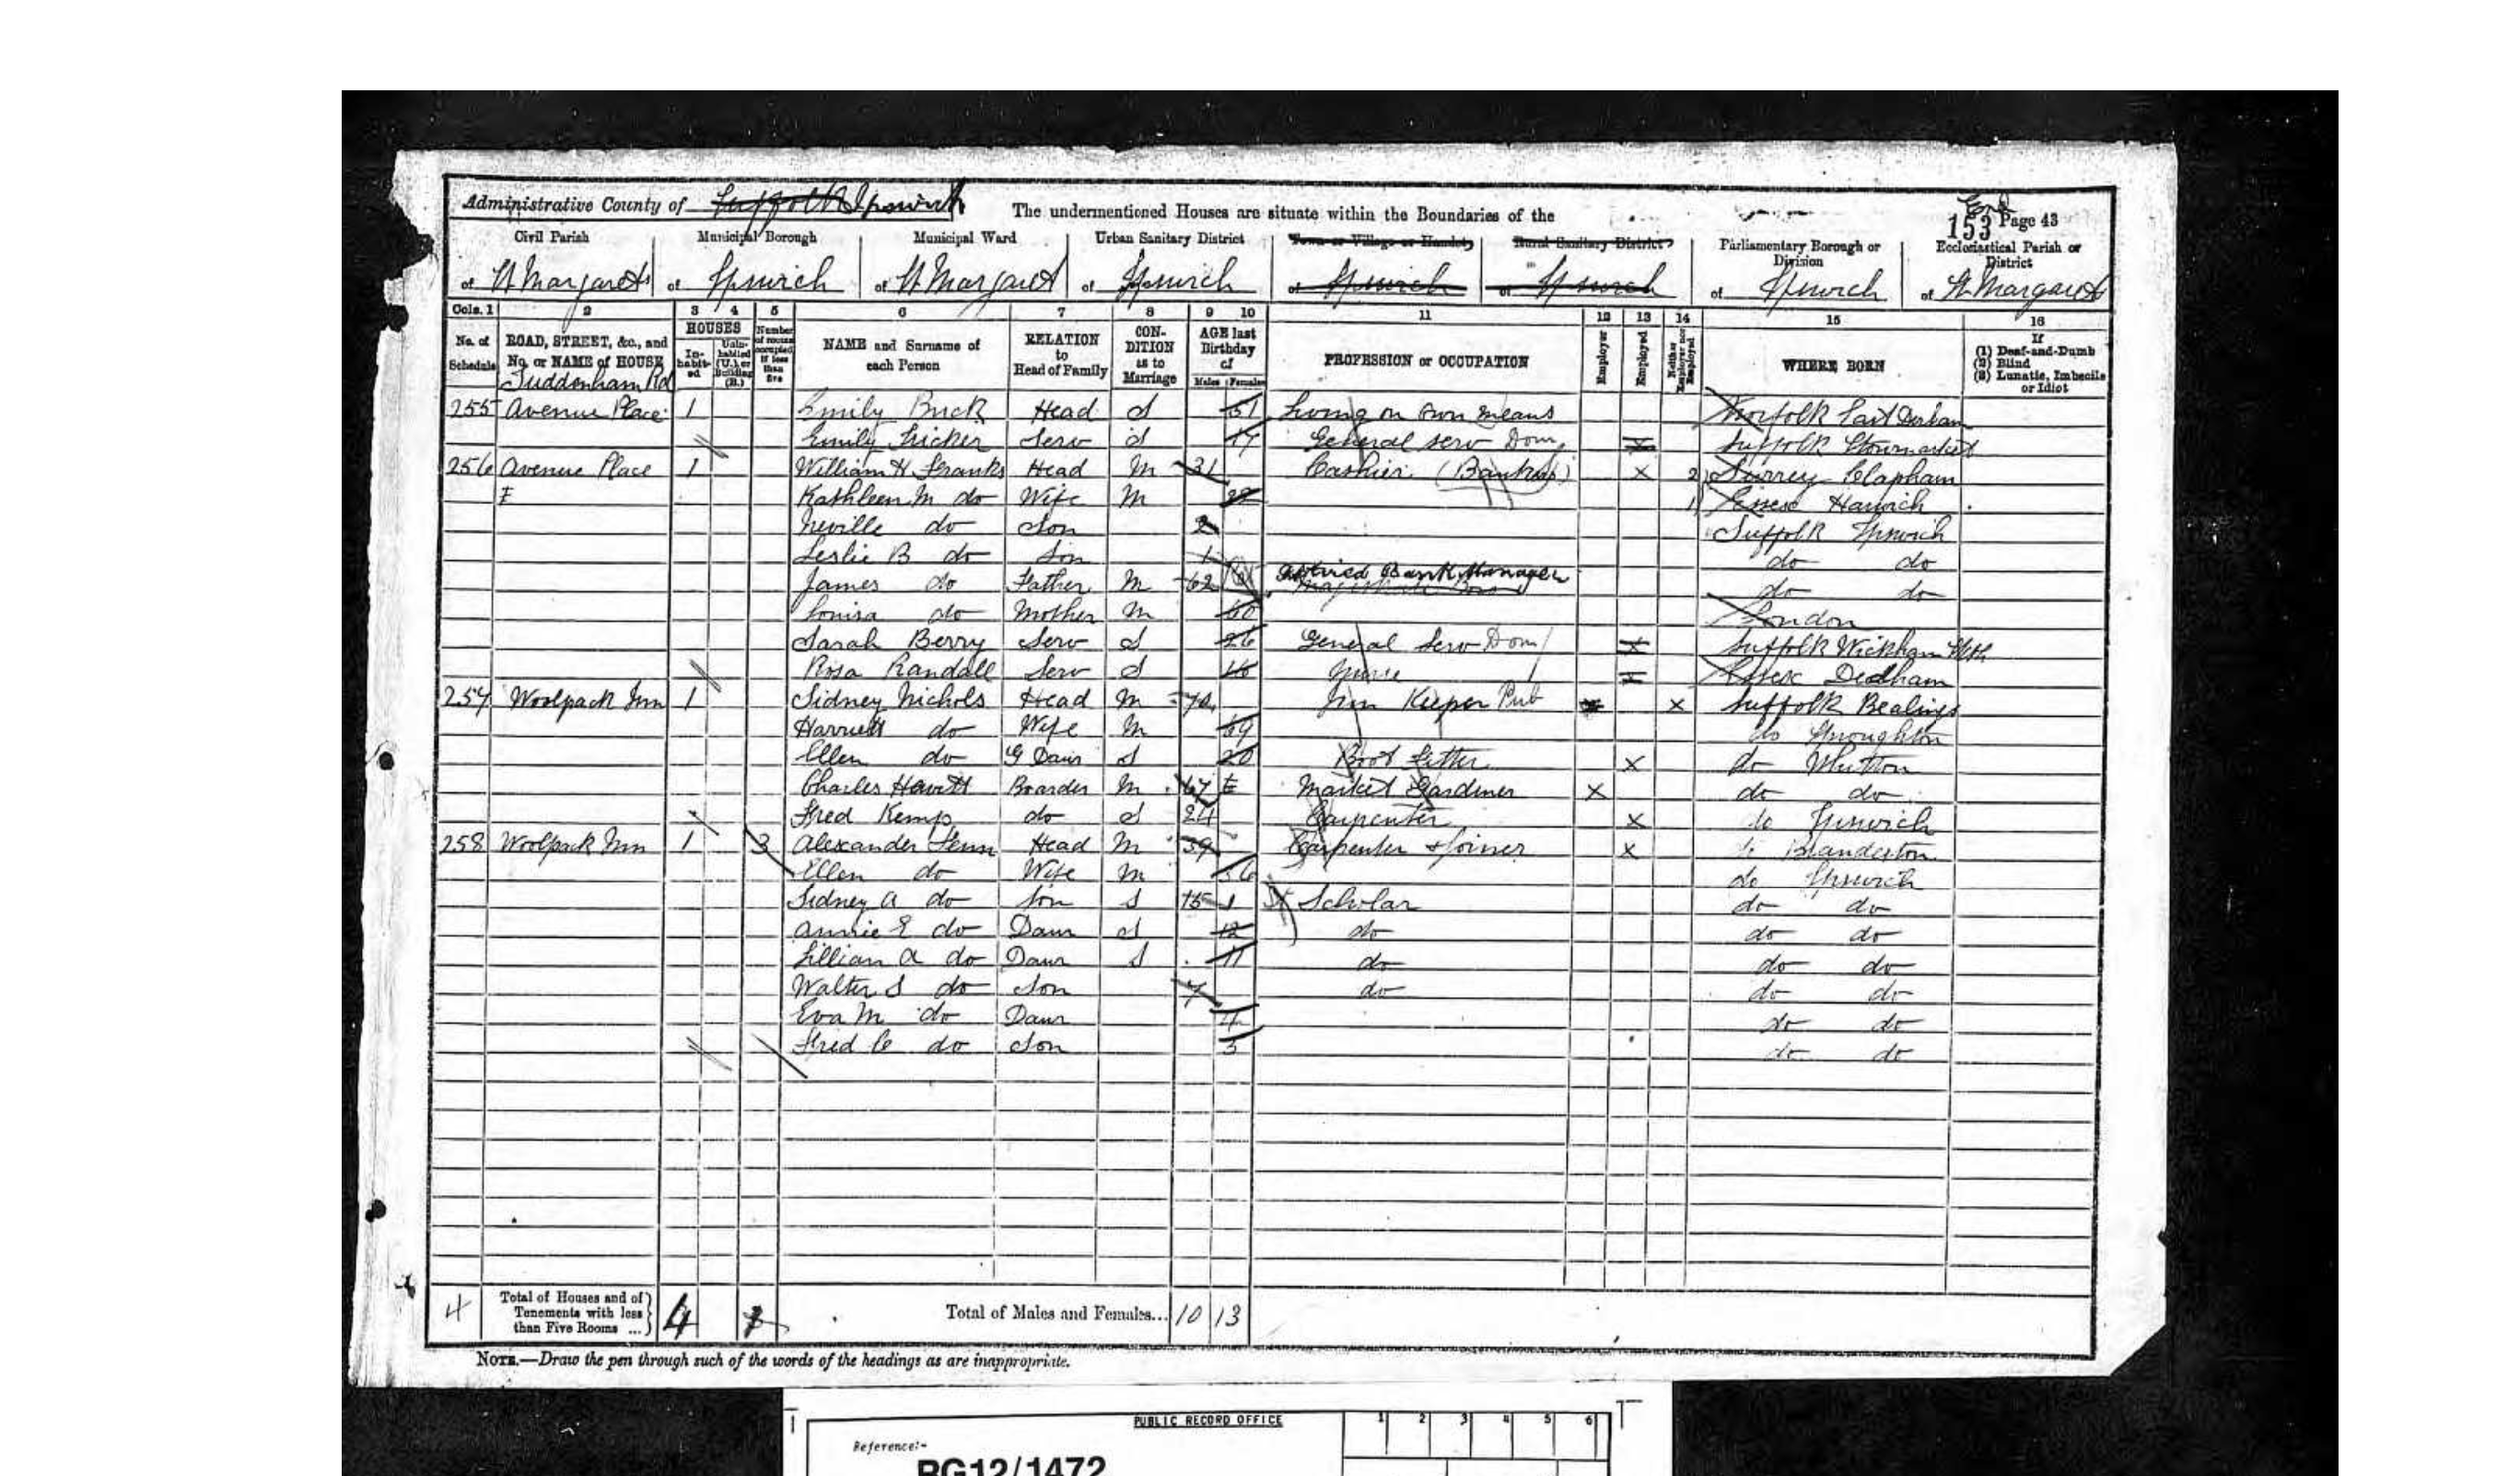 Administrative County of Suffolk Ipswich
The undermentioned Houses are situate within the Boundaries of the
153 Page 43
Civil Parish Municipal Borough Municipal Ward Urban Sanitary District Town or Village or Hamlet Rural Sanitary District Parliamentary Borough or Division Ecclesiastical Parish or District
of St Margarets of Ipswich of St Margaret of Ipswich of Ipswich of Ipswich of Ipswich of St Margarets
Cols. 1 2 3 4 5 6 7 8 9 10 11 12 13 14 15 16
No. of Schedule ROAD, STREET, &c., and No. or NAME of HOUSE HOUSES Inhabited Uninhabited (U.), or Building (B.) Number of rooms occupied if less than five NAME and Surname of each Person RELATION to Head of Family CONDITION as to Marriage AGE last Birthday of Males Females PROFESSION or OCCUPATION Employer Employed Neither Employer nor Employed WHERE BORN If (1) Deaf-and-Dumb (2) Blind (3) Lunatic, Imbecile or Idiot
Tuddenham Rd
255 Avenue Place 1 Emily Buck Head S 51 Living on own means Norfolk East Dereham
Emily Tricker Serv S 17 General serv Dom X Suffolk Stowmarket
256 Avenue Place 1 William H Franks Head M 31 Cashier (Bankers) X 2 Surrey Clapham
Kathleen M do Wife M 1 Essex Harwich
Neville do Son 2 Suffolk Ipswich
Leslie B do Son 1 do do
James do Father M 62 Retired Bank Manager do do
Louisa do Mother M 60 London
Sarah Berry Serv S 26 General Serv Dom X Suffolk Wickham
Rosa Randall Serv S 16 Nurse X Essex Dedham
257 Woolpack Inn 1 Sidney Nichols Head M Inn Keeper Pub X Suffolk Bealings
Harriett do Wife M 69 do Sproughton
Ellen do G Daur S 20 Boot Fitter X do Whitton
Charles Hewitt Boarder M 67 Market Gardener X do do
Fred Kemp do S 24 Carpenter X do Ipswich
258 Woolpack Inn 1 3 Alexander Fenn Head M 39 Carpenter & Joiner X do Brandeston
Ellen do Wife M 36 do Ipswich
Sidney A do Son S 15 Scholar do do
Annie E do Daur S 12 do do do
Lillian A do Daur S 11 do do do
Walter S do Son 7 do do do
Eva M do Daur 4 do do
Fred C do Son 3 do do
4 Total of Houses and of Tenements with less than Five Rooms ... 4 1 Total of Males and Females... 10 13
NOTE.—Draw the pen through such of the words of the headings as are inappropriate.
PUBLIC RECORD OFFICE 1 2 3 4 5 6
Reference:-
RG12/1472